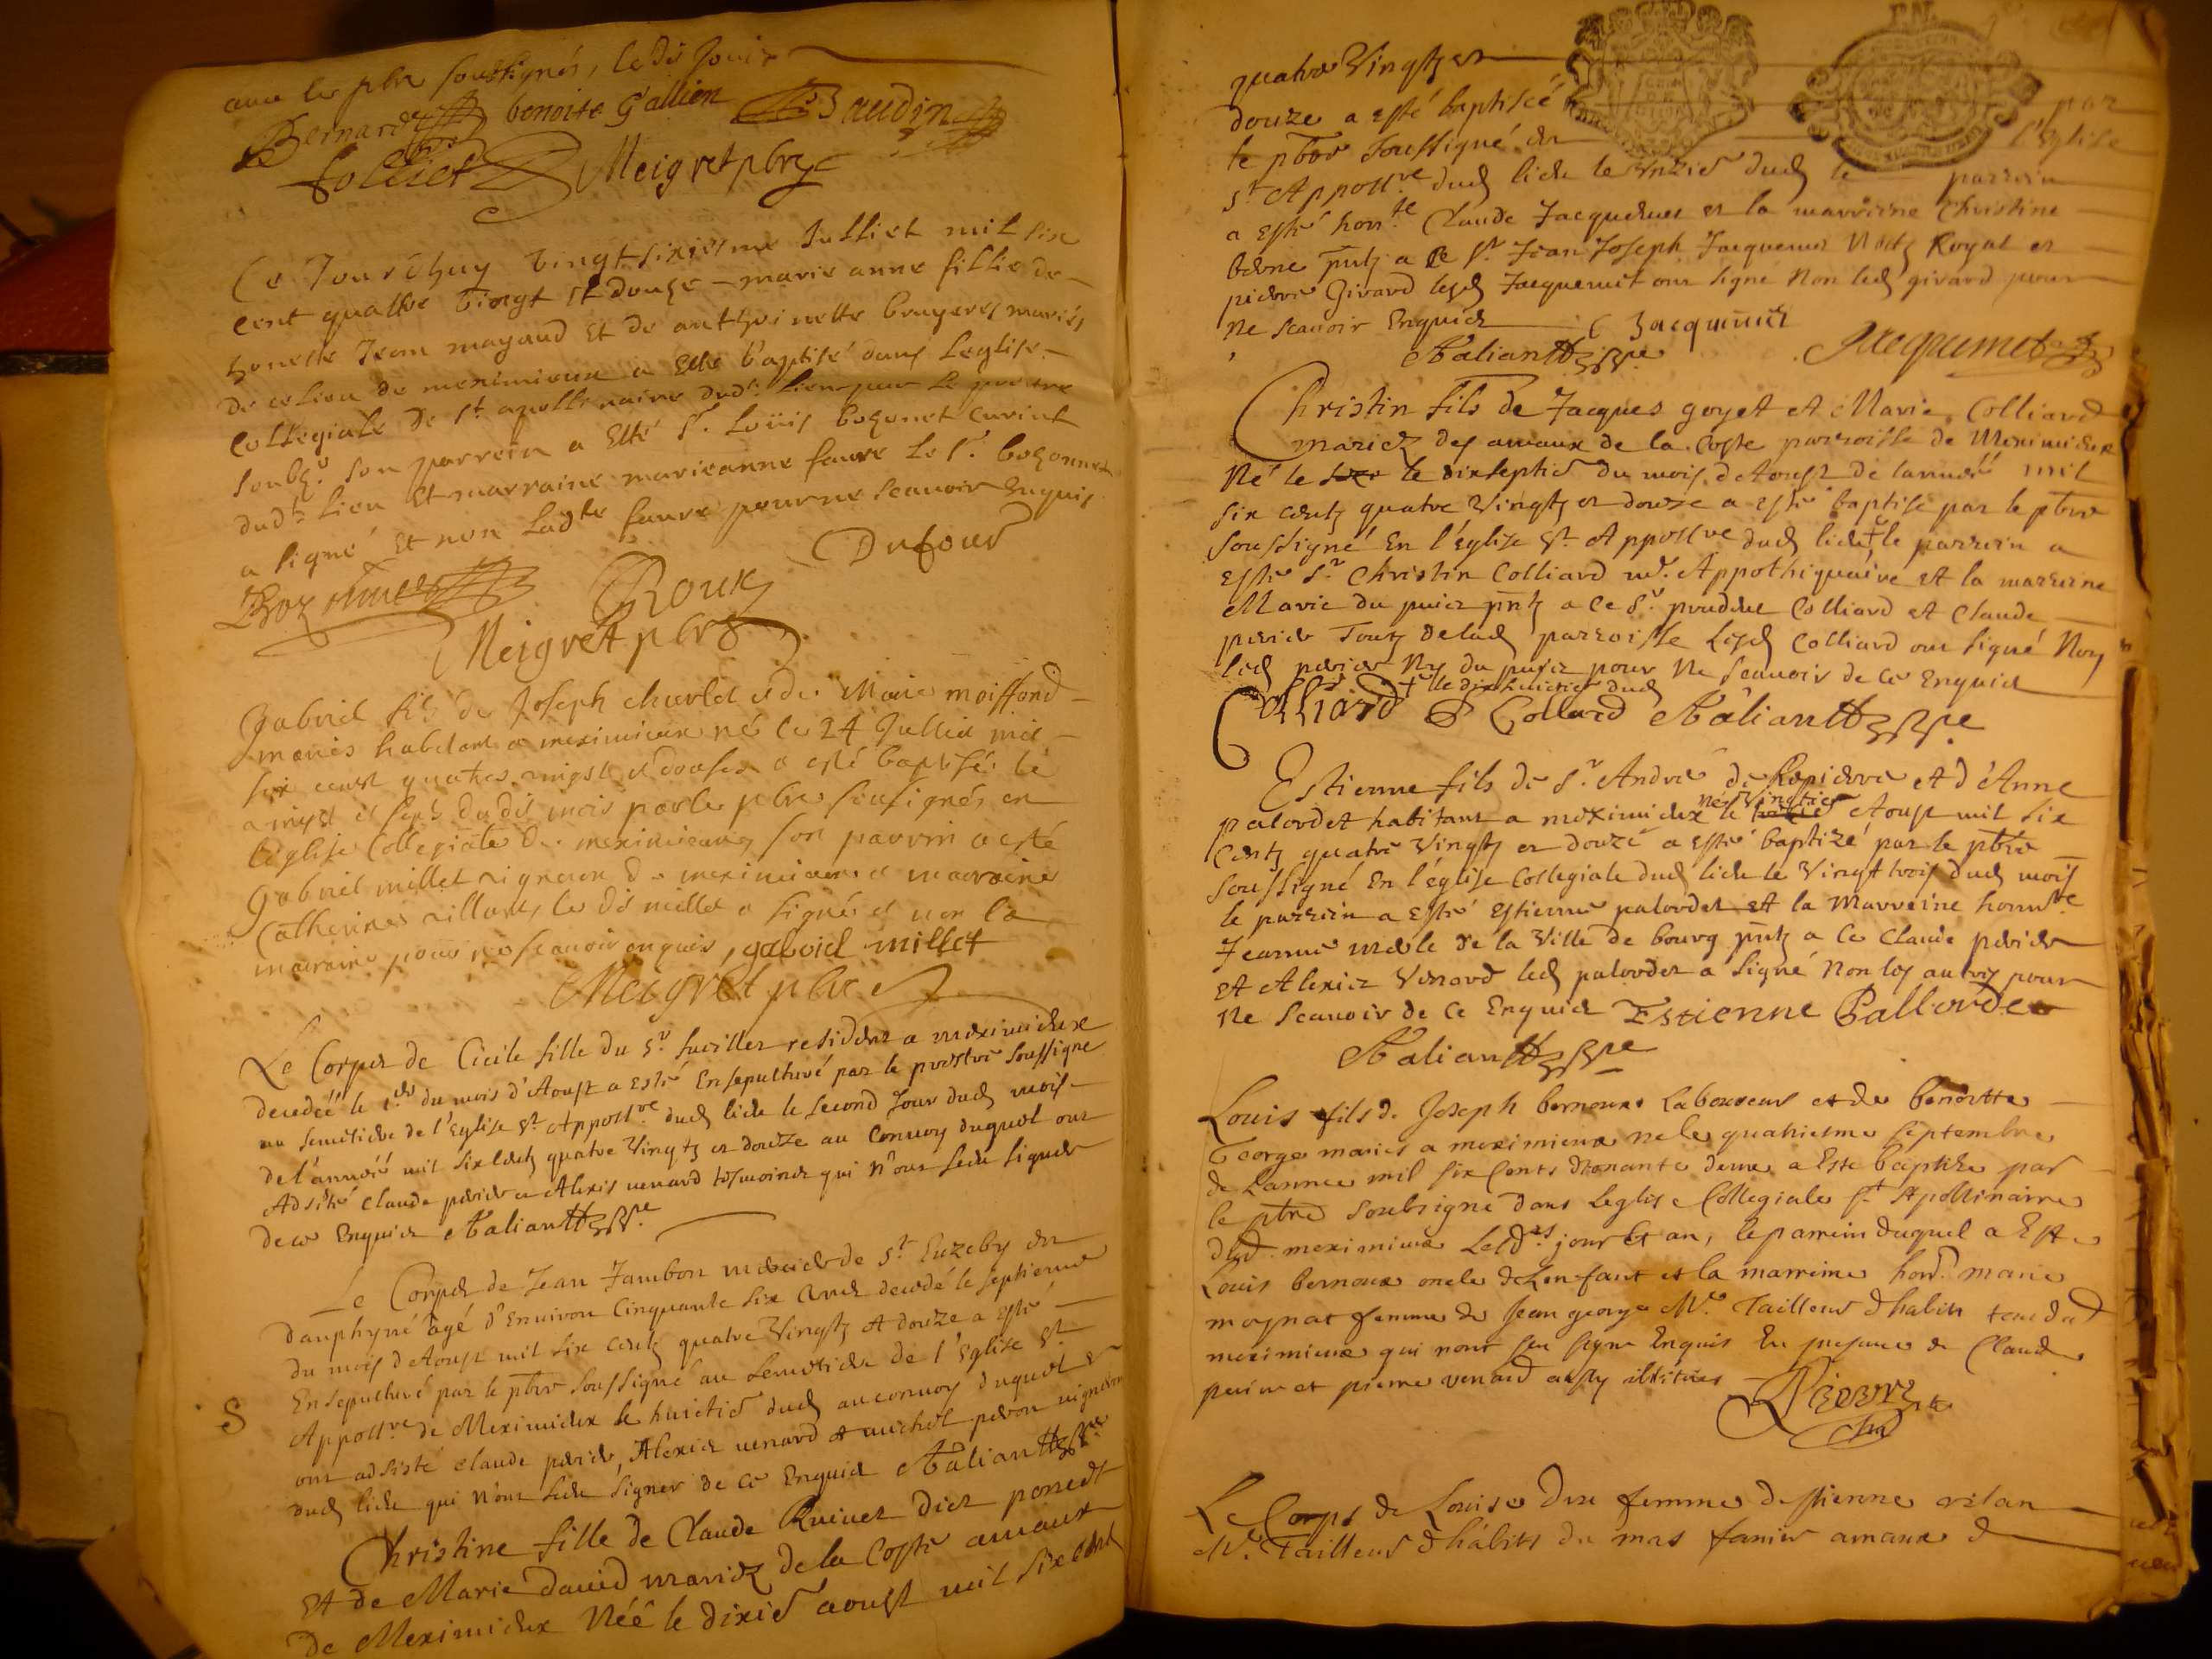 avec les pbre soussignés, ledit jour
Bernard benoite Gallien Baudin
folliet Meigret pbre
Ce Jourdhuy vingt sixiesme Julliet mil six
cent quattre vingt et douze marie anne fillie de
honeste Jean mayaud Et de anthoinette bruyeres mariés
de ce lieu de meximieux a Esté baptisé dans Leglise
Collegialle de st apollinaire dudt Lieu par Le prestre
soubzé son parrein a Esté sr Loüis bozonet Curial
dudt Lieu Et marraine marieanne faure Le sr bozonnet
a signé Et non Ladte faure pour ne scavoir Enquis
Dufour
Roux
Meigret pbre
gabriel fils de Joseph charlet et de Marie moiffond
mariés habitant a meximieux né le 24 Jullia mil
six cent quatres vingst et douses a esté baptisé le
vingst et sept du dit mois par le pbre sousignés en
leglise Collegiate de meximieux, son parrin a esté
gabriel millet vigneron de meximieux et maraine
Catherine villard, le dit millet a signés et non la
maraine pour ne scavoir enquis, gabriel millet
Meigret pbre
Le Corps de Cicile fille du sr fuviller resident a meximieux
decedée le 1er du mois d'Aoust a esté Ensepulturé par le prestre soussigne
au semetiere de l'Eglise st Appollre dud lieu le second Jour dud mois
de l'année mil six Centz quatre Vingtz et douze au Convoy duquel ont
Adsisté Claude perier et Alexis venard tesmoins qui n'ont sceu signer
de ce Enquis Aaliantt pbre
Le Corps de Jean Jambon mercier de st Euzeby en
dauphyné agé d'Environ Cinquante six Ans decedé le septieme
du mois d'Aoust mil six centz quatre Vingtz et douze a esté
Ensepulturé par le pbre soussigné au semetiere de l'Eglise st
S Appollre de Meximieux le huictie dud au convoy duquel
ont adsisté claude perier, Alexis venard et michel peron vigneron
dud lieu qui n'ont sceu signer de ce Enquis Aaliantt pbre
Christine fille de Claude Ruivet dict poncet
et de Marie david mariez de la Coste amaux
de Meximieux Née le dixie aoust mil six cent
quatre Vingtz et
douze a esté baptiseé par
le pbre soussigné en l'Eglise
st Appollre dud lieu le unzie dud le parrein
a esté honte Claude Jacquemet et la marreine Christine
berne pntz a ce sr Jean Joseph Jacquemet Notz Royal et
pierre Girard lesd Jacquemet ont signe Non led girard pour
ne scavoir Enquis C Jacquemet
Aaliantt pbre Jacquemet
Christin fils de Jacques goyet et Marie Colliard
mariez des amaux de la Coste parroisse de Meximieux
Né le le dixseptie du mois d'Aoust de l'année mil
six centz quatre Vingtz et douze a esté baptise par le pbre
soussigné En l'église st Appollre dud lieu + le parrein a
esté sr Christin Colliard me Appothiquaire et la marreine
Marie du puis pntz a ce sr prudent Colliard et Claude
perier Toutz delad parroisse lesd Colliard ont signé Non
led perier Ny du puis pour Ne scavoir de ce Enquis
+ le dixhuictie dud
Colliard Collard Aaliantt pbre
Estienne fils de sr André de Rapierre et d'Anne
né Vingtie
palordet habitant a meximieux le Aoust mil six
Centz quatre Vingtz et douze a esté baptizé par le pbre
soussigné En l'église Collegiale dud lieu le Vingt trois dud mois
le parrein a esté Estienne palordet et la Marreine honnte
Jeanne merle de la Ville de bourg pntz a ce Claude perier
et Alexis Venard led palordet a signé Non les autres pour
Ne scavoir de ce Enquis Estienne Pallordet
Aaliantt pbre
Louis fils de Joseph bernoux Laboureur et de benoitte
George maries a meximieux ne le quatriesme septembre
de Lannee mil six Cents Nonante deux a Este baptize par
le pbre soubsigne dans Leglise Collegiale st Apollinaire
dudt meximieux Lesdts jour et an, le parrein duquel a Esté
Louis bernoux oncle de Lenfant et la marreine hond marie
moynat femme de Jean george Me Tailleur dhabits tous dud
meximieux qui nont sceu signe Enquis En presence de Claude
perier et pierre venard aussy illitéres
Le Corps de Louise femme destienne vilan
Me Tailleur dhabits du mas fanier amaux de